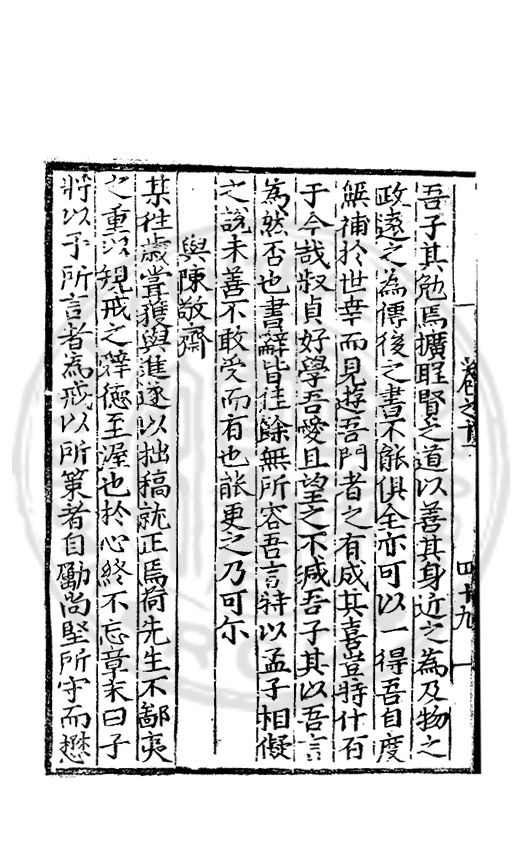 吾子其勉焉擴聖賢之道以善其身近之為及物之
政遠之為傳後之書不能俱全亦可以一得吾自度
無補於世幸而見遊吾門者之有成其喜豈特什百
于今哉叔貞好學吾愛且望之不減吾子其以吾言
為然否也書辭皆佳餘無所容吾言特以孟子相儗
之說未善不敢受而有也能更之乃可尔
與陳敬齋
某往歲嘗獲與進遂以拙稿就正焉荷先生不鄙夷
之重以規戒之辭德至渥也於心終不忘章末曰子
將以予所言者為戒以所策者自勵尚堅所守而懋
卷之
四十九